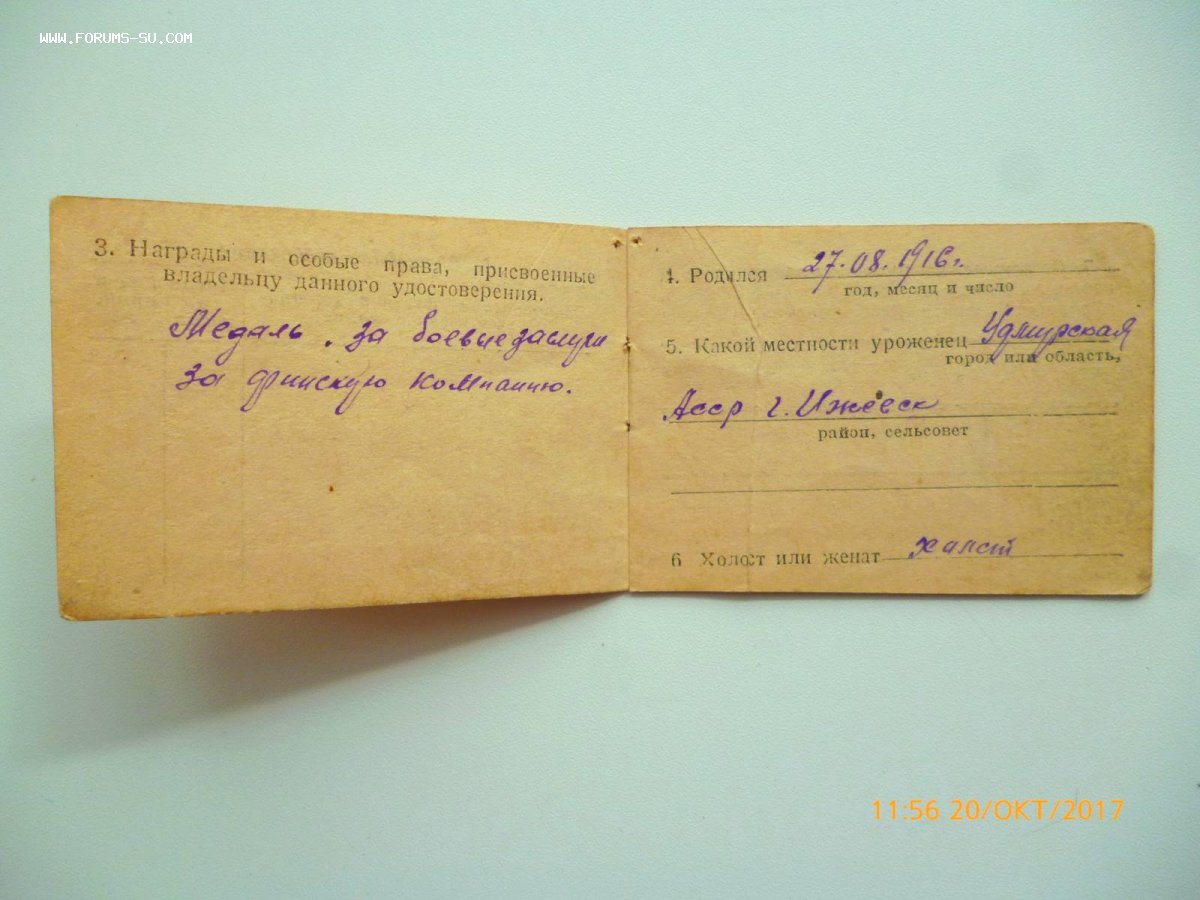 WWW.FORUMS-SU.COM
3. Награды и особые права, присвоенные
владельцу данного удостоверения.
Медаль "За боевые заслуги
за финскую компанию.
4. Родился 27.08.1916г.
год, месяц и число
5. Какой местности уроженец Удмурская
город или область,
Асср г. Ижевск
район, сельсовет
6 Холост или женат халст
11:56 20/ОКТ/2017